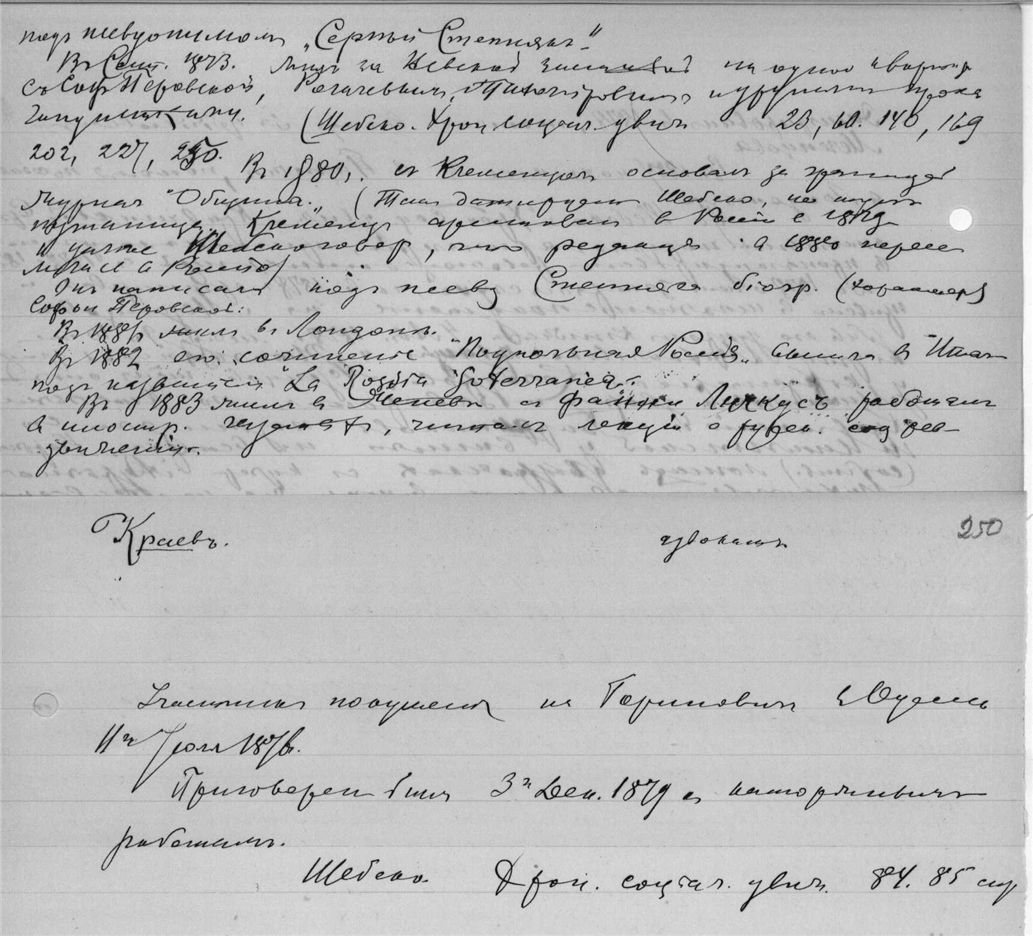 подъ псевдонимомъ „Сергѣй Степнякъ“
Въ Сент. 1873. жилъ за Невской заставой на одной квартирѣ
съ Соф. Перовской, Рогачевымъ, и другими
(Шебеко. Хрон. социал. движ. 23, 60. 140, 169
202, 227, 250.
Въ 1880, съ Клеменцомъ основалъ за границей
журналъ "Община". (Такъ датируетъ Шебеко, но
Клеменцъ арестованъ въ Россіи въ 1879
что редакція въ 1880 перене
въ Россію)
Онъ написалъ подъ псевд Степняка біогр. (характер)
Софьи Перовской.
Въ 1881 жилъ въ Лондонѣ.
Въ 1882 его сочиненіе "Подпольная Россія" вышла въ Итал
подъ названіемъ "La Rossia Soterranea".
Въ 1883 жилъ въ Женевѣ съ Фанни Личкусъ работалъ
въ иностр. газетахъ, читалъ лекціи о русск. рев
движеніи.
Краевъ. адвокатъ 250
Участникъ покушенія на Гориновича въ Одессѣ
11го Іюля 1876.
Приговоренъ былъ 3го Дек. 1879 къ каторжнымъ
работамъ.
Шебеко Хрон. социал. движ. 84. 85 стр